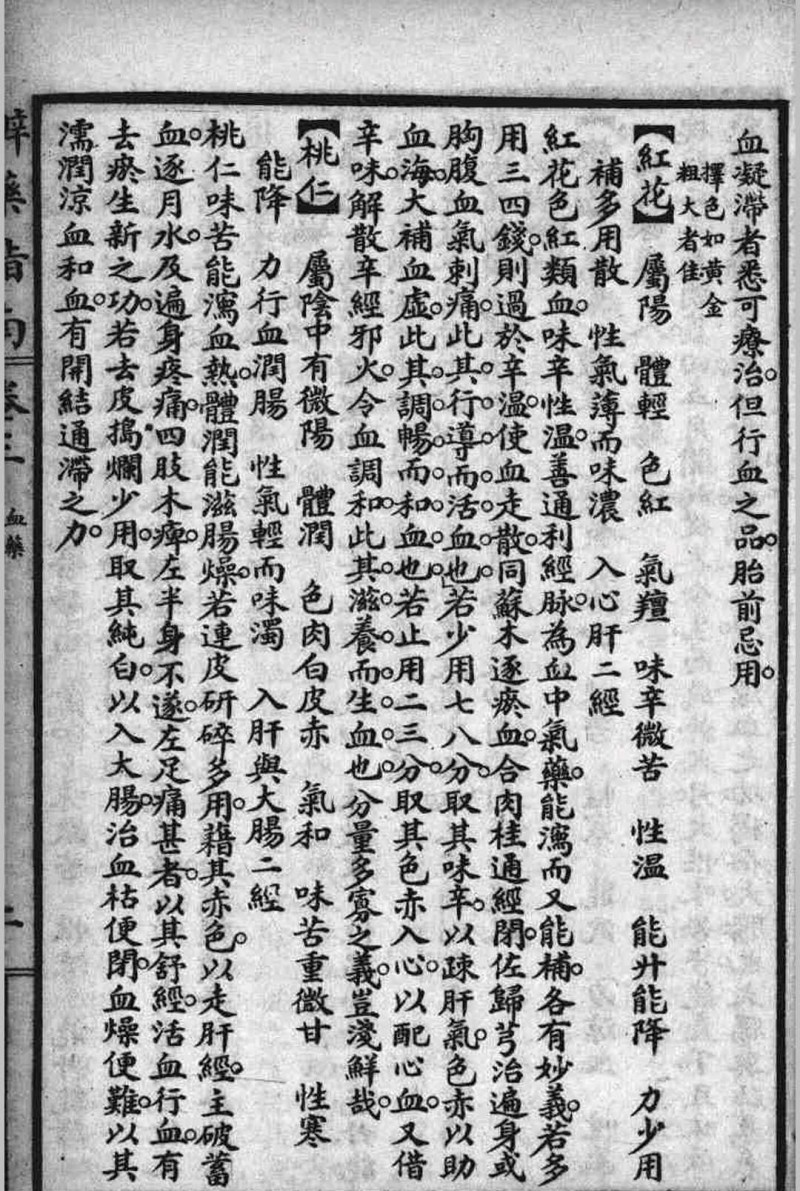 血凝滯者悉可療治。但行血之品。胎前忌用。
擇色如黃金
粗大者佳
【紅花】 屬陽 體輕 色紅 氣羶 味辛微苦 性溫 能升能降 力少用
補多用散 性氣薄而味濃 入心肝二經
紅花色紅類血。味辛性溫。善通利經脉。為血中氣藥。能瀉而又能補。各有妙義。若多
用三四錢。則過於辛溫。使血走散。同蘇木逐瘀血。合肉桂通經閉。佐歸芎治遍身或
胸腹血氣刺痛。此其行導而活血也。若少用七八分。取其味辛。以疎肝氣。色赤以助
血海。大補血虛。此其調暢而和血也。若止用二三分。取其色赤入心。以配心血。又借
辛味。解散辛經邪火。令血調和。此其滋養而生血也。分量多寡之義。豈淺鮮哉。
【桃仁】 屬陰中有微陽 體潤 色肉白皮赤 氣和 味苦重微甘 性寒
能降 力行血潤腸 性氣輕而味濁 入肝與大腸二經
桃仁味苦能瀉血熱。體潤能滋腸燥。若連皮研碎多用。藉其赤色。以走肝經。主破蓄
血。逐月水。及遍身疼痛。四肢木痺。左半身不遂。左足痛甚者。以其舒經活血行血。有
去瘀生新之功。若去皮搗爛少用。取其純白。以入大腸。治血枯便閉。血燥便難。以其
濡潤涼血和血。有開結通滯之力。
辨藥指南 卷三 血藥 二